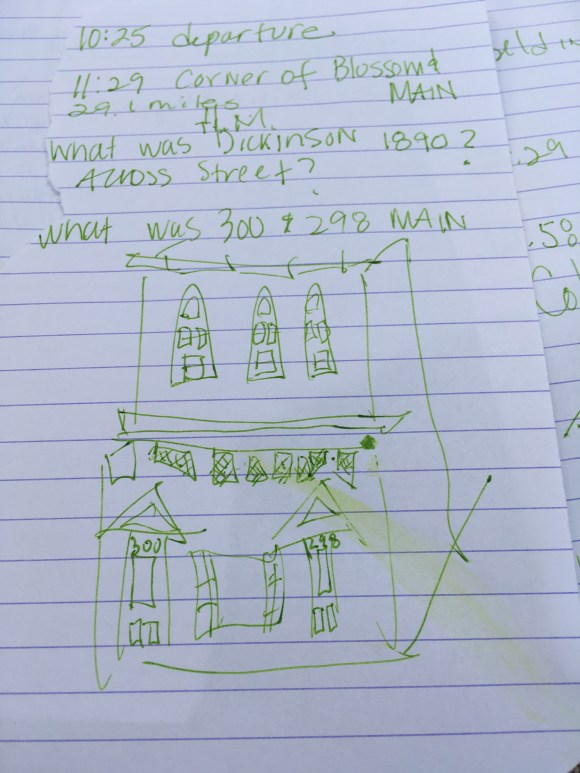 10:25 departure
11:29 Corner of Blossom &
29.1 miles MAIN
H.M.
What was DickiNSON 1890?
Across Street?
What was 300 & 298 MAIN
300 298
.29
.58